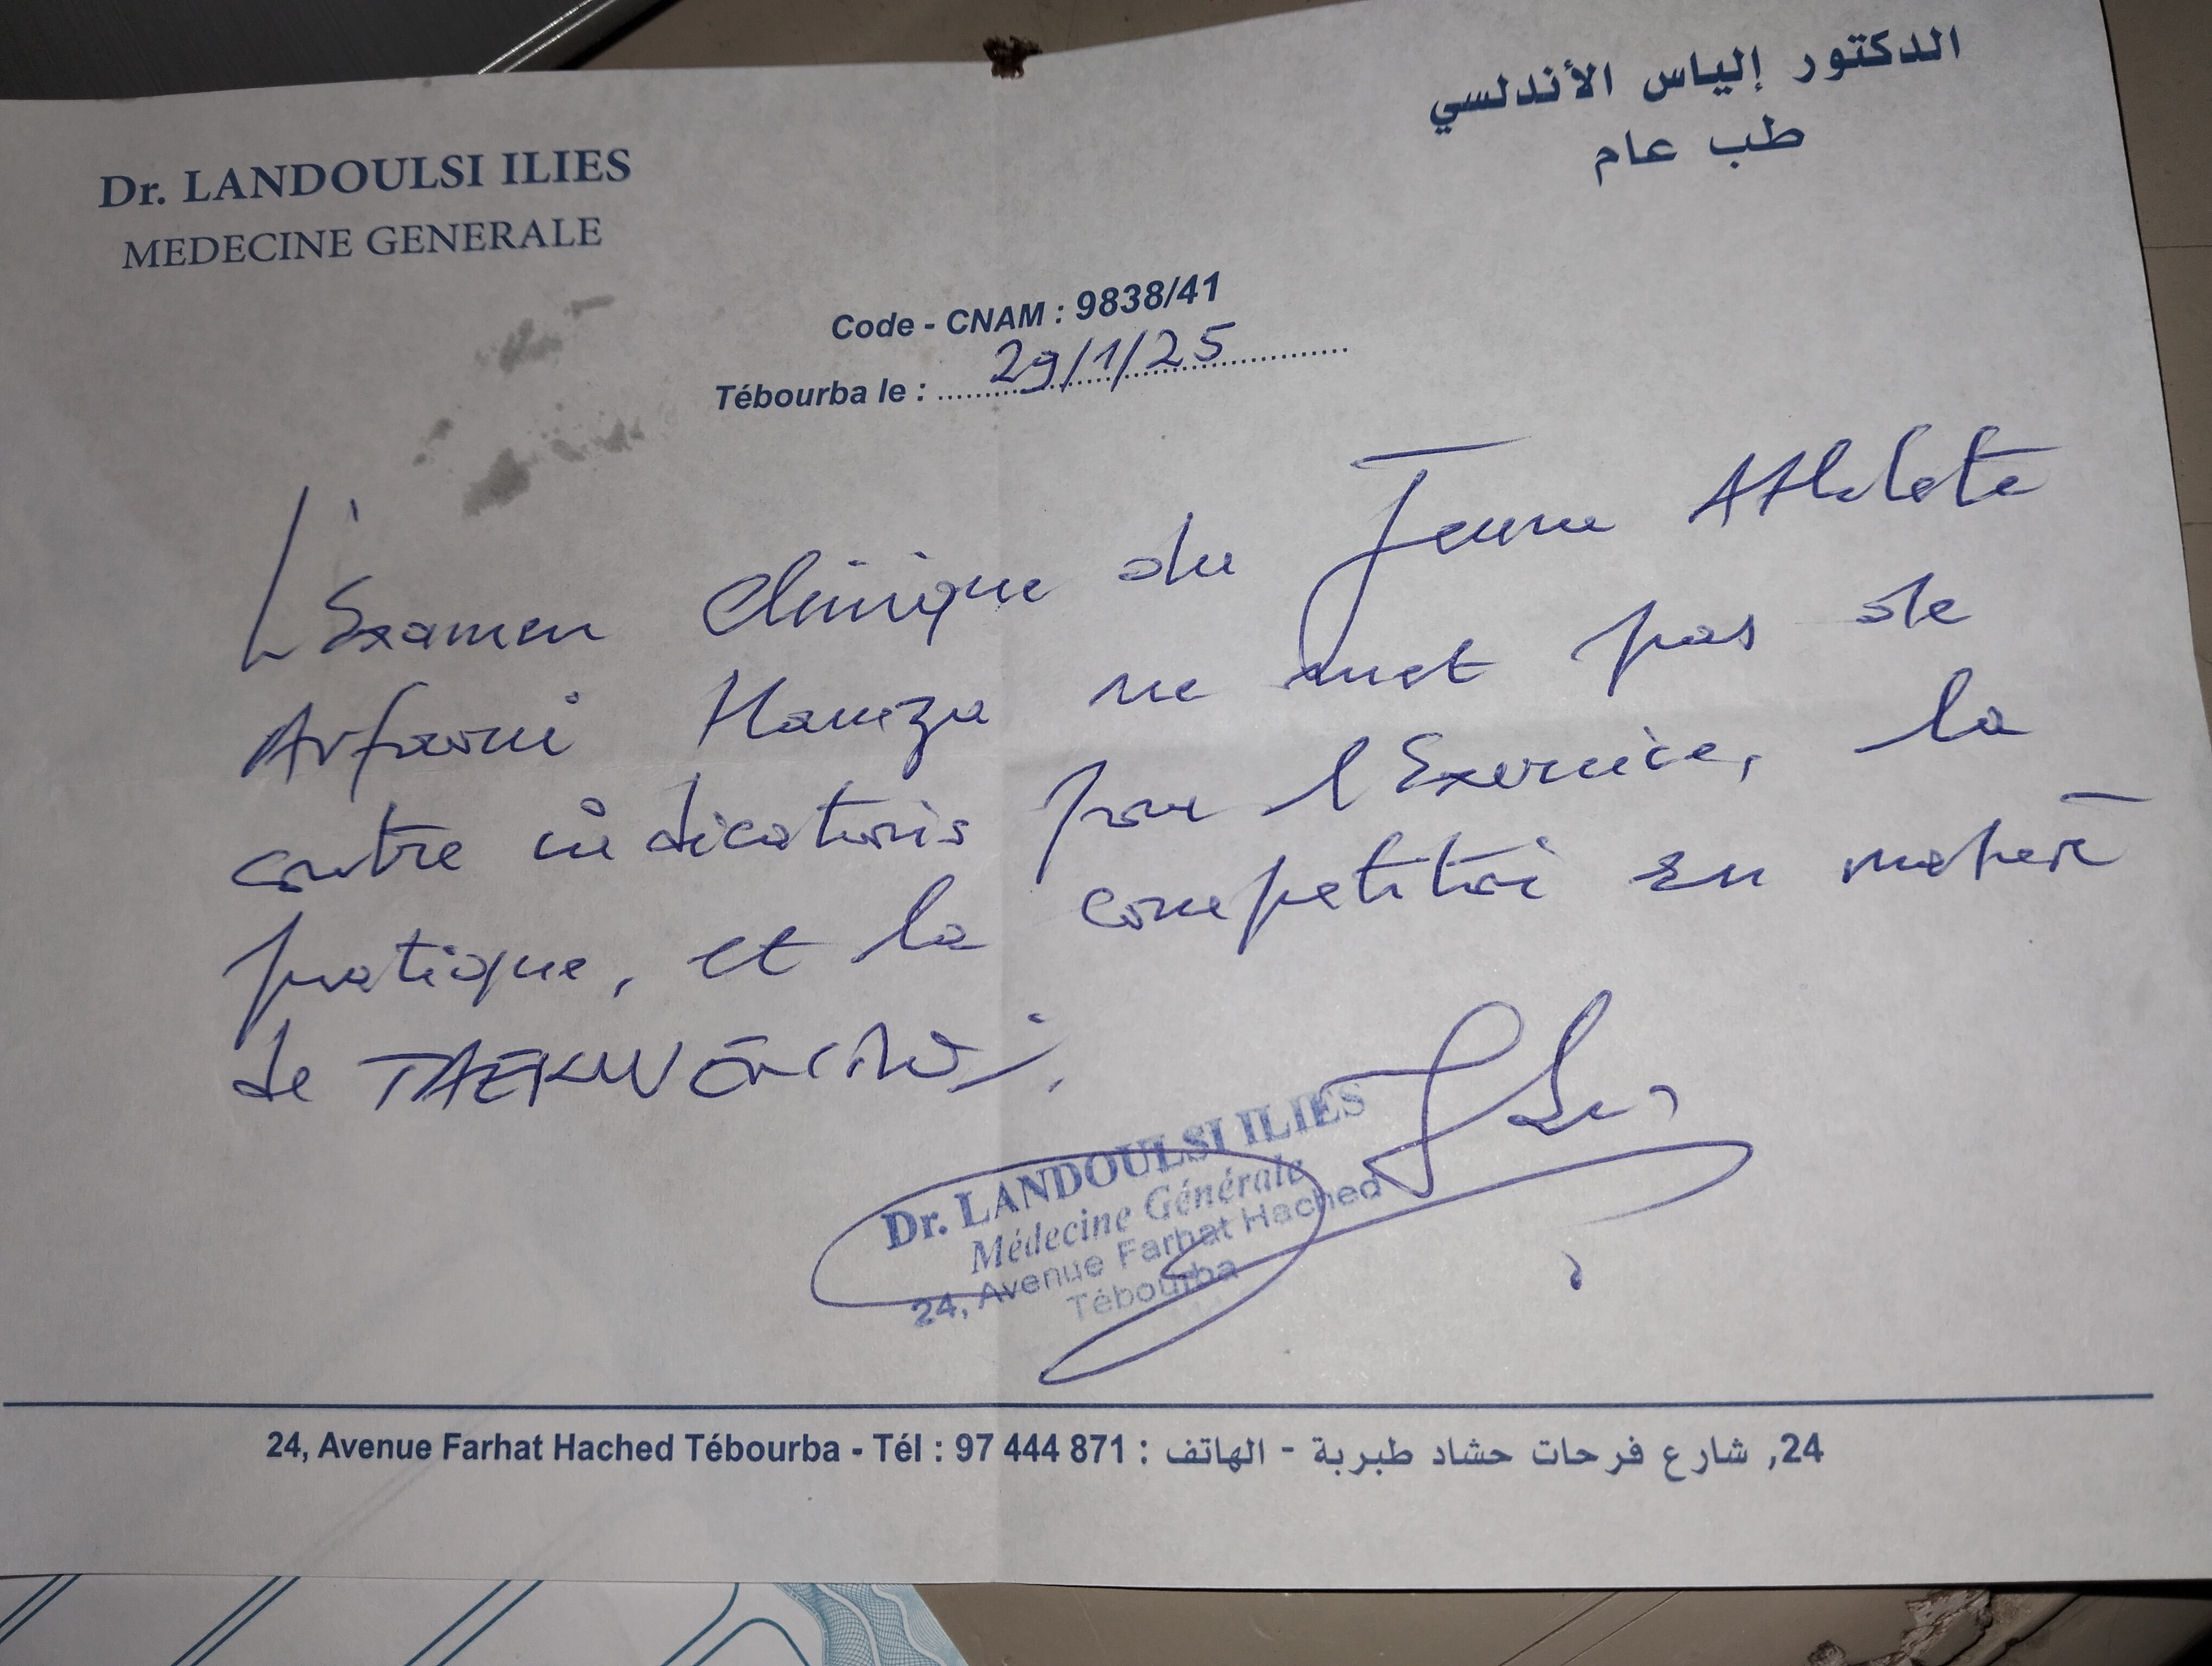 الدكتور إلياس الأندلسي
طب عام
Dr. LANDOULSI ILIES
MEDECINE GENERALE
Code - CNAM : 9838/41
Tébourba le : 29/1/25
L'Examen Clinique du Jeune Athlete
Arfaoui Hamza ne met pas de
contre indications pour l'Exercice, la
pratique, et la competition en matiere
de
Dr. LANDOULSI ILIES
Médecine Générale
24, Avenue Farhat Hached
Tébourba
24, Avenue Farhat Hached Tébourba - Tél : 97 444 871 : 24, شارع فرحات حشاد طبربة - الهاتف